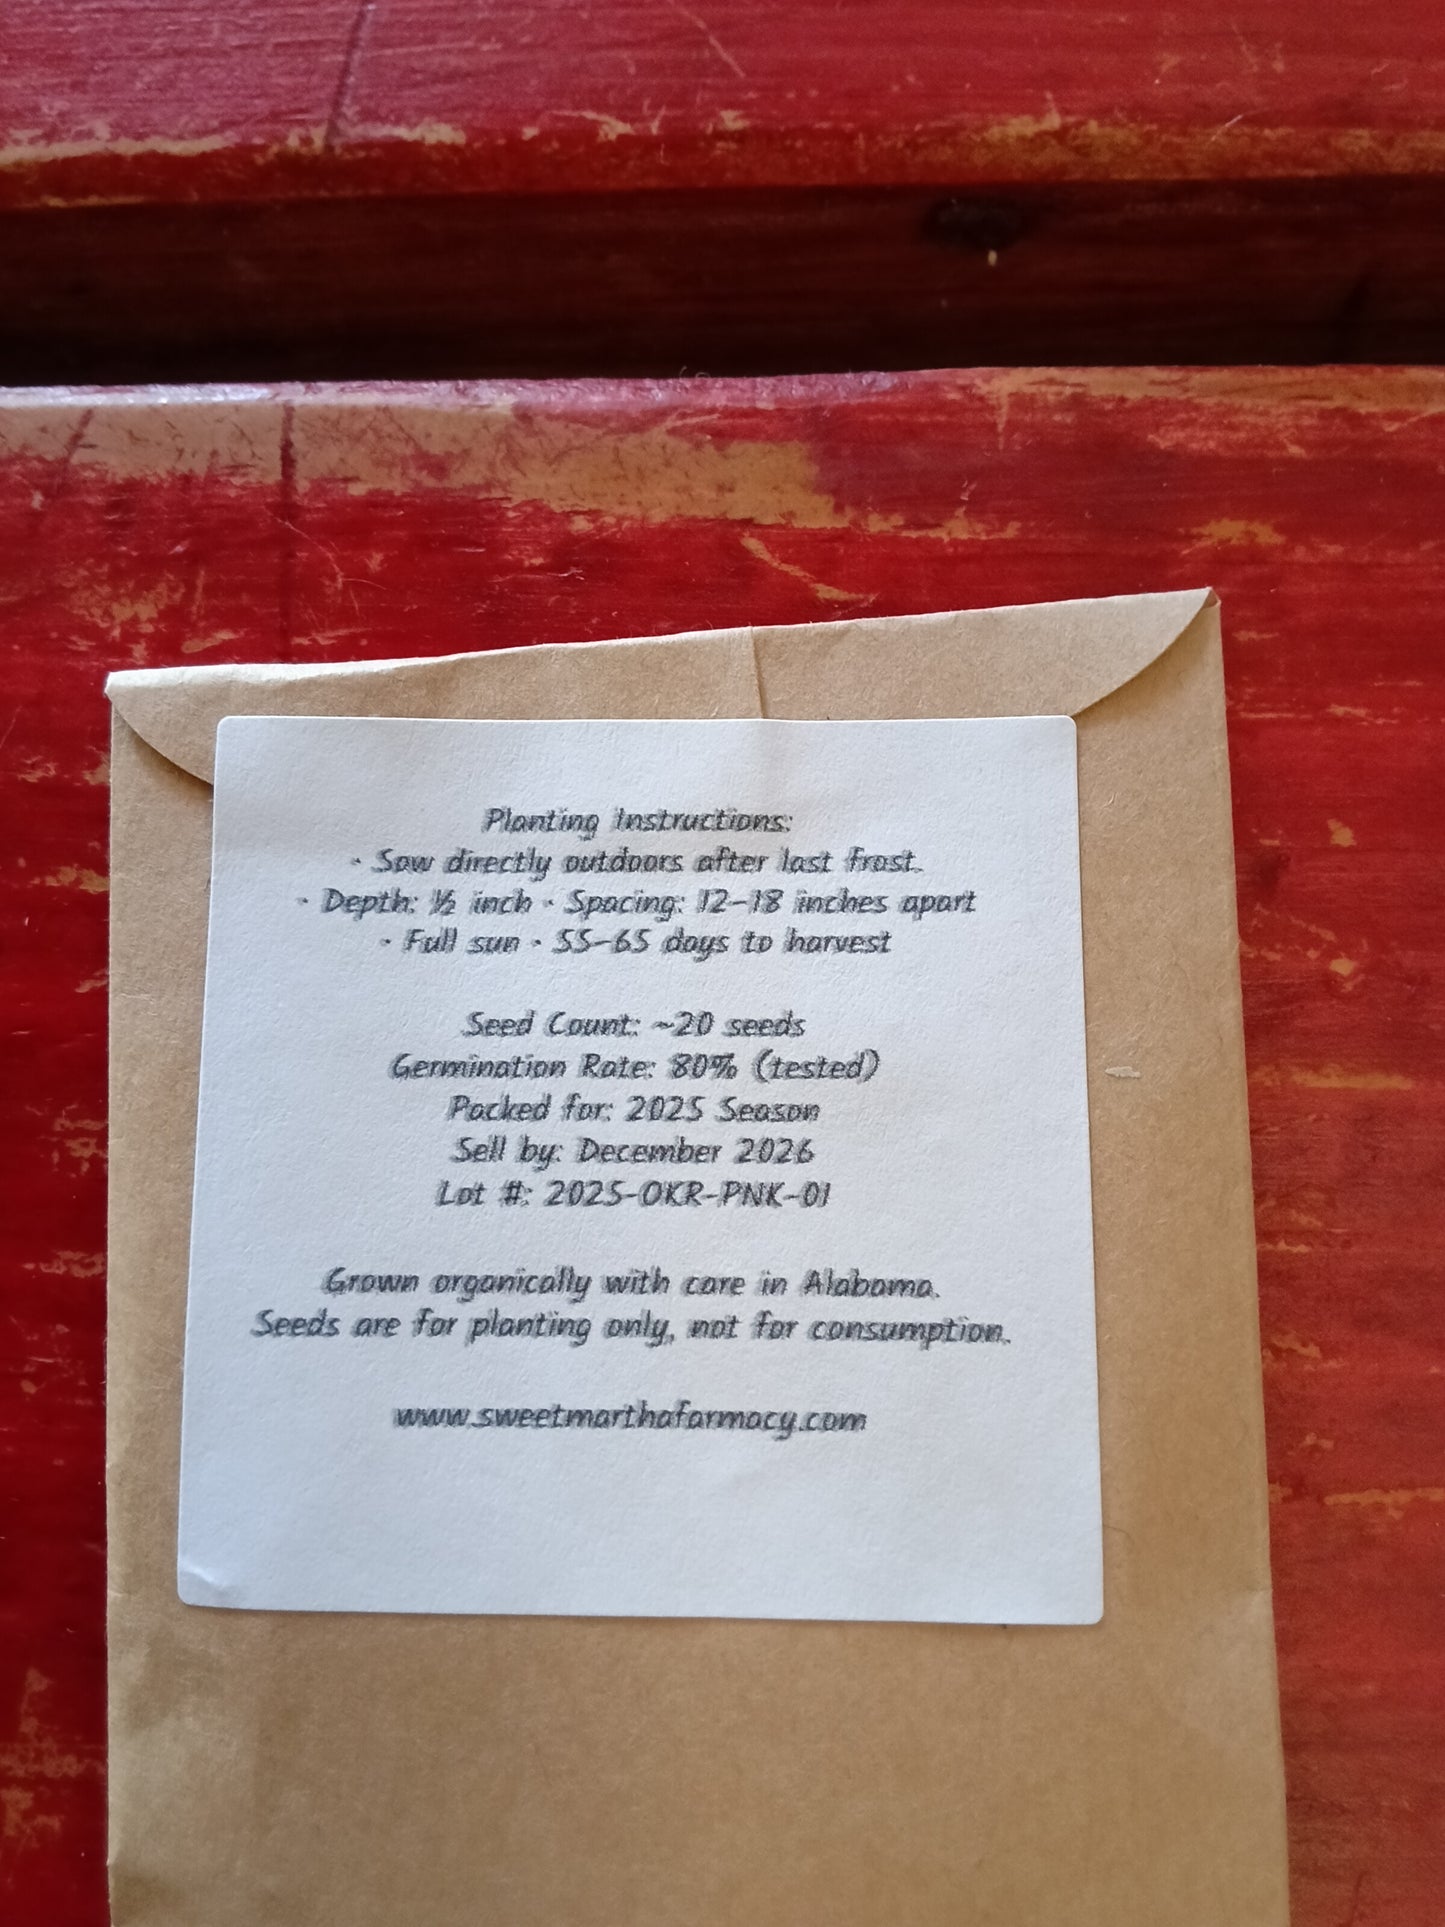 Planting Instructions:
· Sow directly outdoors after last frost.
· Depth: ½ inch · Spacing: 12–18 inches apart
· Full sun · 55–65 days to harvest
Seed Count: ~20 seeds
Germination Rate: 80% (tested)
Packed for: 2025 Season
Sell by: December 2026
Lot #: 2025-OKR-PNK-01
Grown organically with care in Alabama.
Seeds are for planting only, not for consumption.
www.sweetmarthafarmacy.com